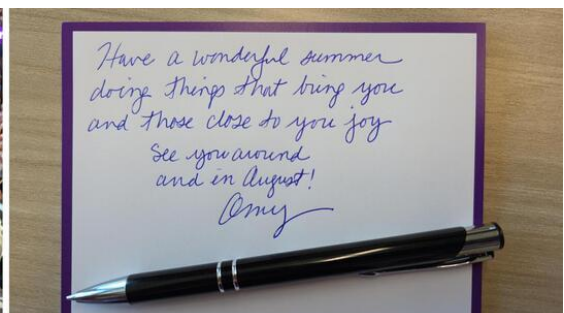 Have a wonderful summer
doing things that bring you
and those close to you joy
See you around
and in August!
Amy